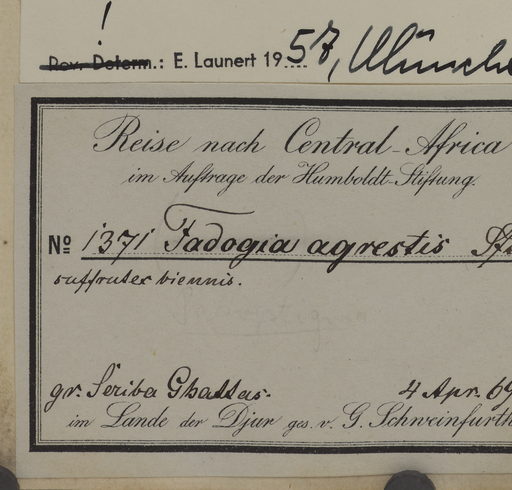 !
Rev. Determ.: E. Launert 1957, München
Reise nach Central-Africa
im Auftrage der Humboldt-Stiftung.
No 1371 Fadogia agrestis
suffrutex biennis.
gr. Seriba Ghattas. 4 Apr. 69
im Lande der Djur ges. v. G. Schweinfurth